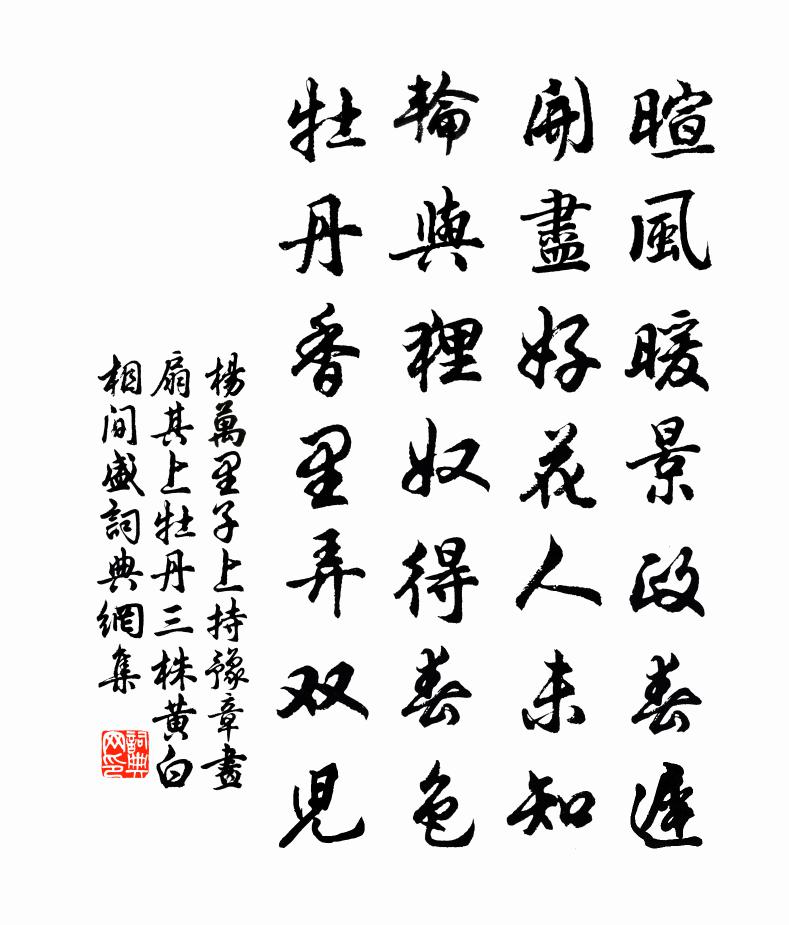 暄風暖景政春遲
開盡好花人未知
輪與狸奴得春色
牡丹香里弄双児
楊萬里子上持豫章畫
扇其上牡丹三株黄白
相间盛詞典網集
詞典网印